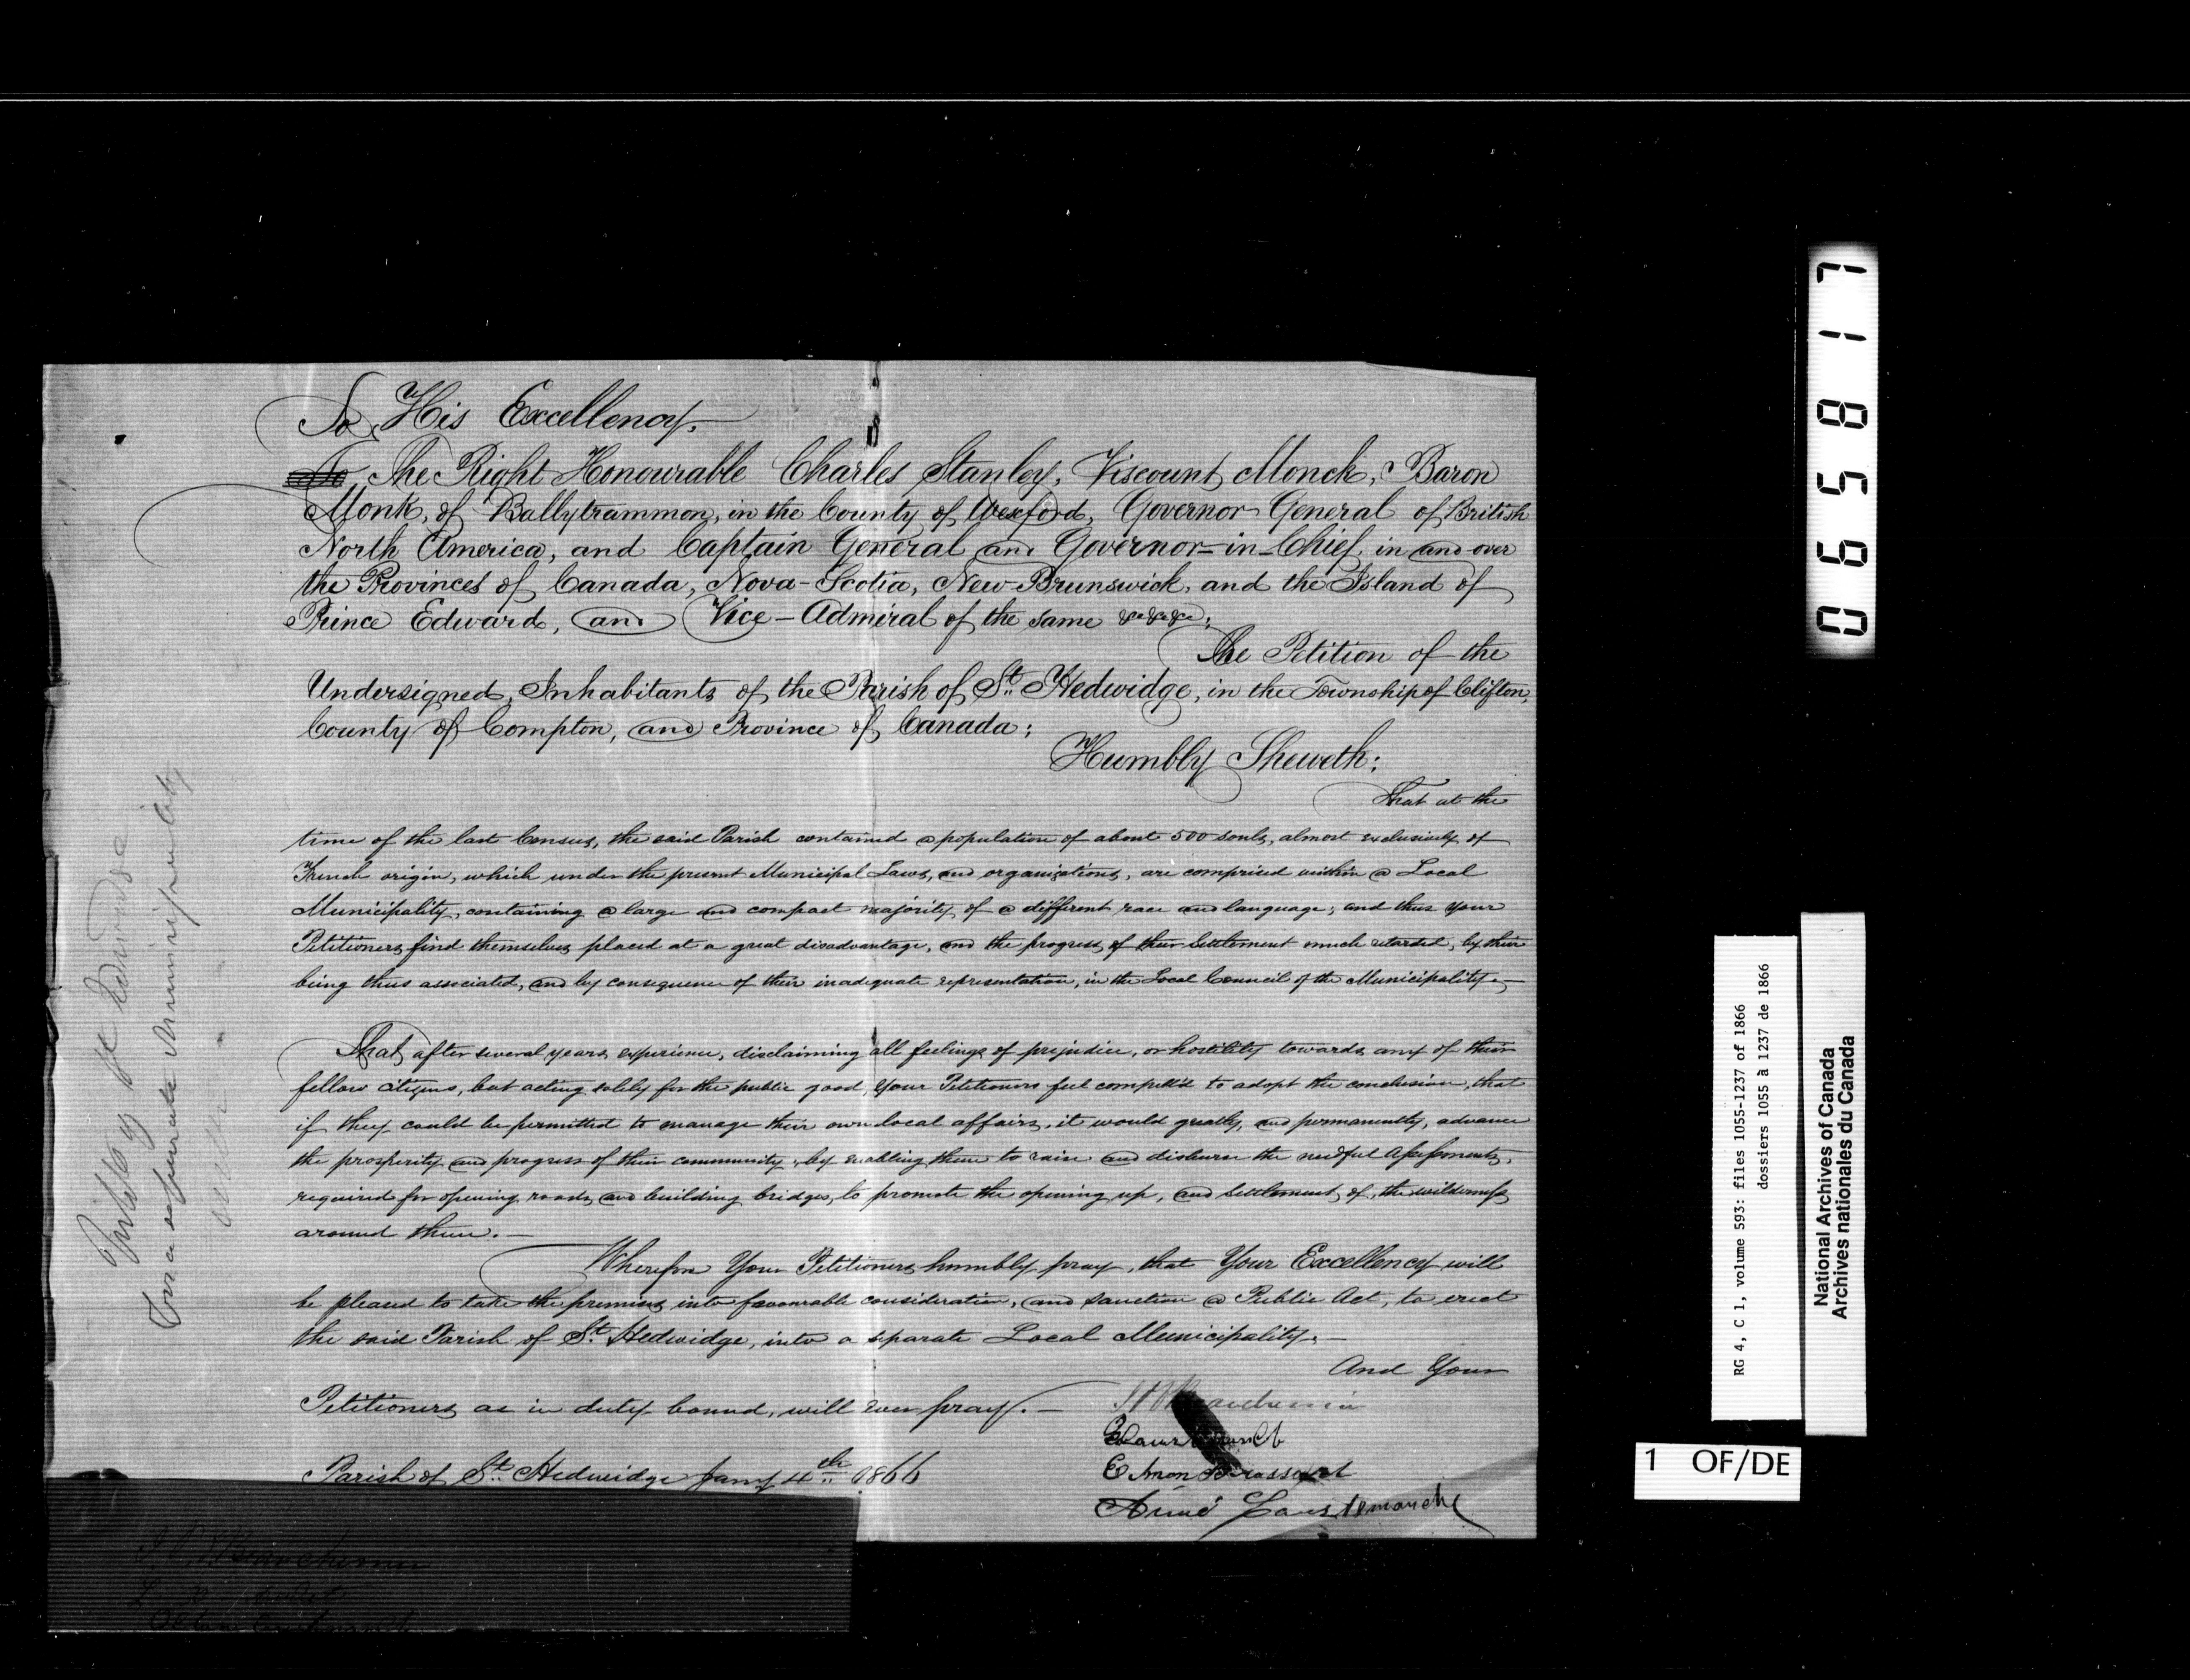 To His Excellency.
To The Right Honourable Charles Stanley, Viscount Monck, Baron
Monk, of Ballytrammon, in the County of Wexford, Governor General of British
North America, and Captain General and Governor-in-Chief, in and over
the Provinces of Canada, Nova-Scotia, New-Brunswick, and the Island of
Prince Edward, and Vice-Admiral of the same &c &c &c:
The Petition of the
Undersigned, Inhabitants of the Parish of St. Hedwidge, in the Township of Clifton,
County of Compton, and Province of Canada:
Humbly Sheweth:
That at the
time of the last Census, the said Parish contained a population of about 500 souls, almost exclusively of
French origin, which under the present Municipal Laws, and organizations, are comprised within a Local
Municipality, containing a large and compact majority of a different race and language; and thus your
Petitioners find themselves placed at a great disadvantage, and the progress of their Settlement much retarded, by their
being thus associated, and by consequence of their inadequate representation, in the Local Council of the Municipality.—
That after several years experience, disclaiming all feelings of prejudice, or hostility towards any of their
fellow citizens, but acting solely for the public good, Your Petitioners feel compell'd to adopt the conclusion, that
if they could be permitted to manage their own local affairs, it would greatly, and permanently, advance
the prosperity and progress of their community, by enabling them to raise and disburse the needful Assessments,
required for opening roads, and building bridges, to promote the opening up, and Settlement, of, the wilderness
around them.—
Wherefore Your Petitioners humbly pray, that Your Excellency will
be pleased to take the premises into favourable consideration, and sanction a Public Act, to erect
the said Parish of St. Hedwidge, into a separate Local Municipality.—
And Your
Petitioners as in duty bound, will ever pray.—
Parish of St. Hedwidge Jany 4th 1866
Aimé Courtemanche
J. Beauchemin
of St Hedwidge
For a separate Municipality
065817
RG 4, C 1, volume 593: files 1055-1237 of 1866
dossiers 1055 à 1237 de 1866
National Archives of Canada
Archives nationales du Canada
1 OF/DE